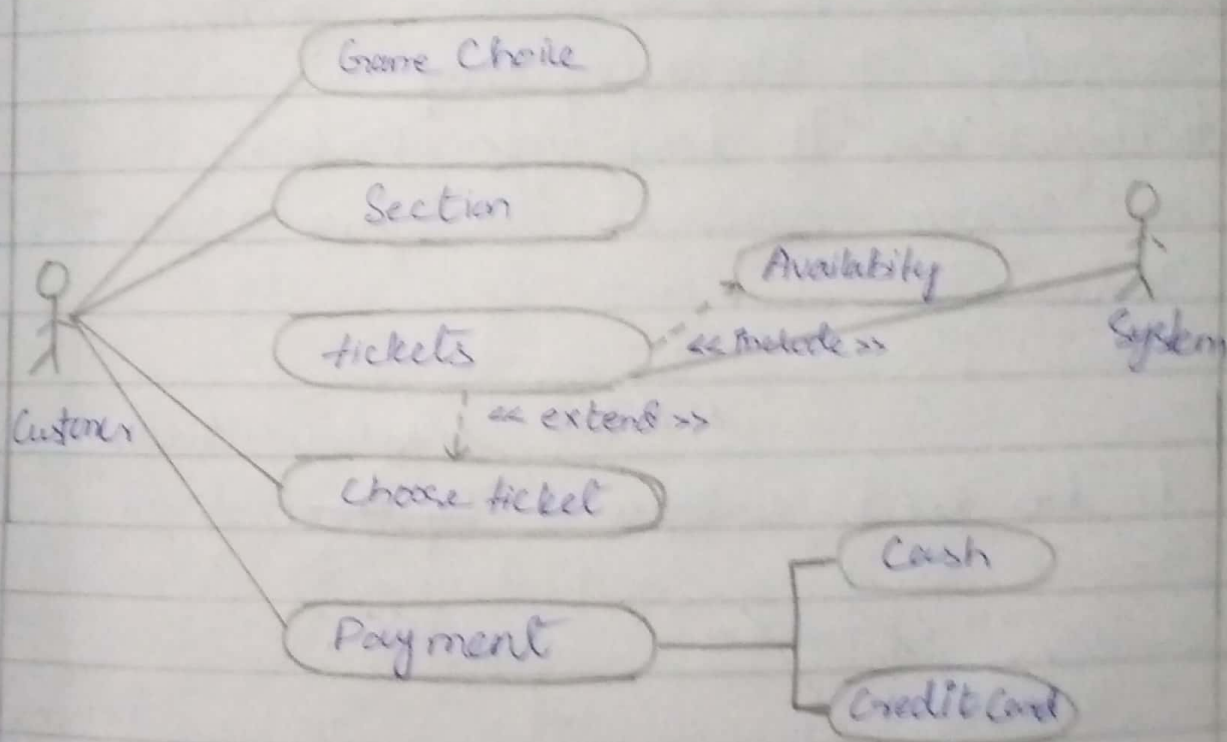 Game Choice
Section
Availability
tickets
<< include >>
System
<< extend >>
Customer
Choose ticket
Cash
Payment
Credit Card